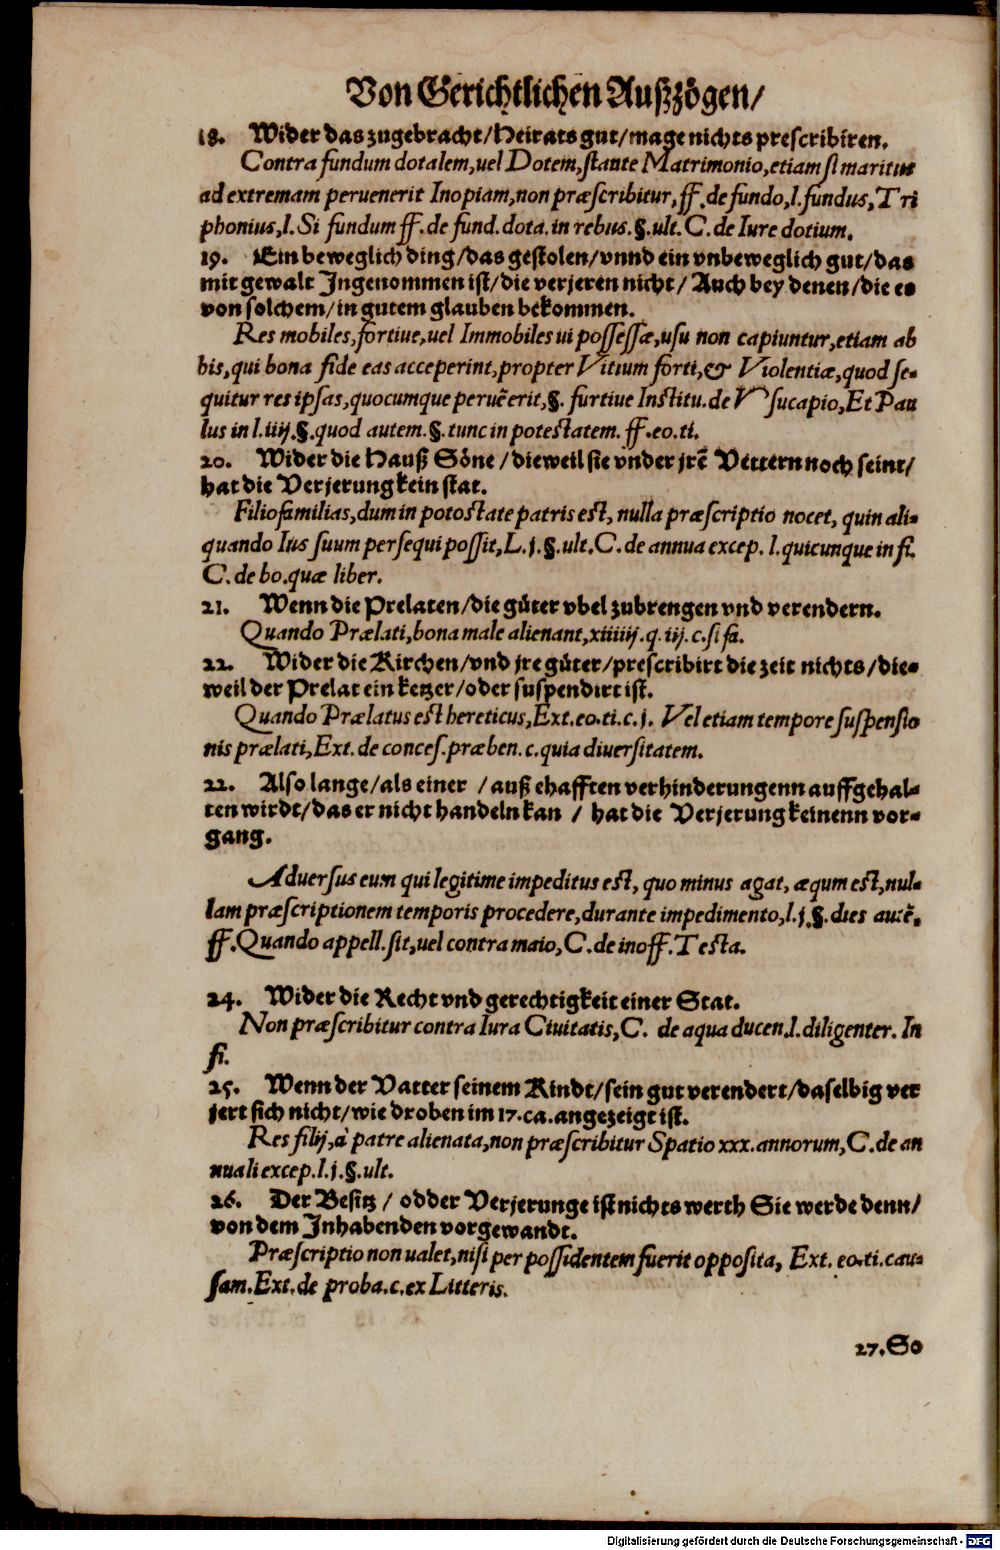 Von Gerichtlichen Außzögen/
18. Wider das zugebracht/Heirats gut/mage nichts prescribiren.
Contra fundum dotalem, uel Dotem, stante Matrimonio, etiam si maritus
ad extremam peruenerit Inopiam, non præscribitur, ff. de fundo, l. fundus, Tri
phonius, l. Si fundum ff. de fund. dota. in rebus. §. ult. C. de Iure dotium.
19. Ein beweglich ding/das gestolen/vnnd ein vnbeweglich gut/das
mit gewalt Ingenommen ist/die verjeren nicht/ Auch bey denen/die es
von solchem/in gutem glauben bekommen.
Res mobiles, fortiue, uel Immobiles ui possessæ, usu non capiuntur, etiam ab
his, qui bona fide eas acceperint, propter Vitium forti, & Violentiæ, quod se-
quitur res ipsas, quocumque peruẽerit, §. furtiue Institu. de Vsucapio, Et Pau
lus in l. iiij. §. quod autem. §. tunc in potestatem. ff. eo. ti.
20. Wider die Hauß Söne/dieweil sie vnder jrẽ Vettern noch seint/
hat die Verjerung kein stat.
Filiofamilias, dum in potostate patris est, nulla præscriptio nocet, quin ali-
quando Ius suum persequi possit, L. j. §. ult. C. de annua excep. l. quicunque in fi.
C. de bo. quæ liber.
21. Wenn die Prelaten/die güter vbel zubrengen vnd verendern.
Quando Prælati, bona male alienant, xiiiiij. q. iij. c. si sa.
22. Wider die Kirchen/vnd jre güter/prescribirt die zeit nichts/die-
weil der Prelat ein ketzer/oder suspendirt ist.
Quando Prælatus est hereticus, Ext. eo. ti. c. j. Vel etiam tempore suspensio
nis prælati, Ext. de conces. præben. c. quia diuersitatem.
22. Also lange/als einer / auß ehafften verhinderungenn auffgehal-
ten wirdt/das er nicht handeln kan / hat die Verjerung keinenn vor-
gang.
Aduersus eum qui legitime impeditus est, quo minus agat, æqum est, nul-
lam præscriptionem temporis procedere, durante impedimento, l. j. §. dies autẽ.
ff. Quando appell. sit, uel contra maio, C. de inoff. Testa.
24. Wider die Recht vnd gerechtigkeit einer Stat.
Non præscribitur contra Iura Ciuitatis, C. de aqua ducen. l. diligenter. In
fi.
25. Wenn der Vatter seinem Kindt/sein gut verendert/daselbig ver
jert sich nicht/wie droben im 17. ca. angezeigt ist.
Res filij, à patre alienata, non præscribitur Spatio xxx. annorum, C. de an
nuali excep. l. j. §. ult.
26. Der Besitz / odder Verjerunge ist nichts werth Sie werde denn/
von dem Inhabenden vorgewandt.
Præscriptio non ualet, nisi per possidentem fuerit opposita, Ext. eo. ti. cau-
sam. Ext. de proba. c. ex Litteris.
27. So
Digitalisierung gefördert durch die Deutsche Forschungsgemeinschaft - DFG